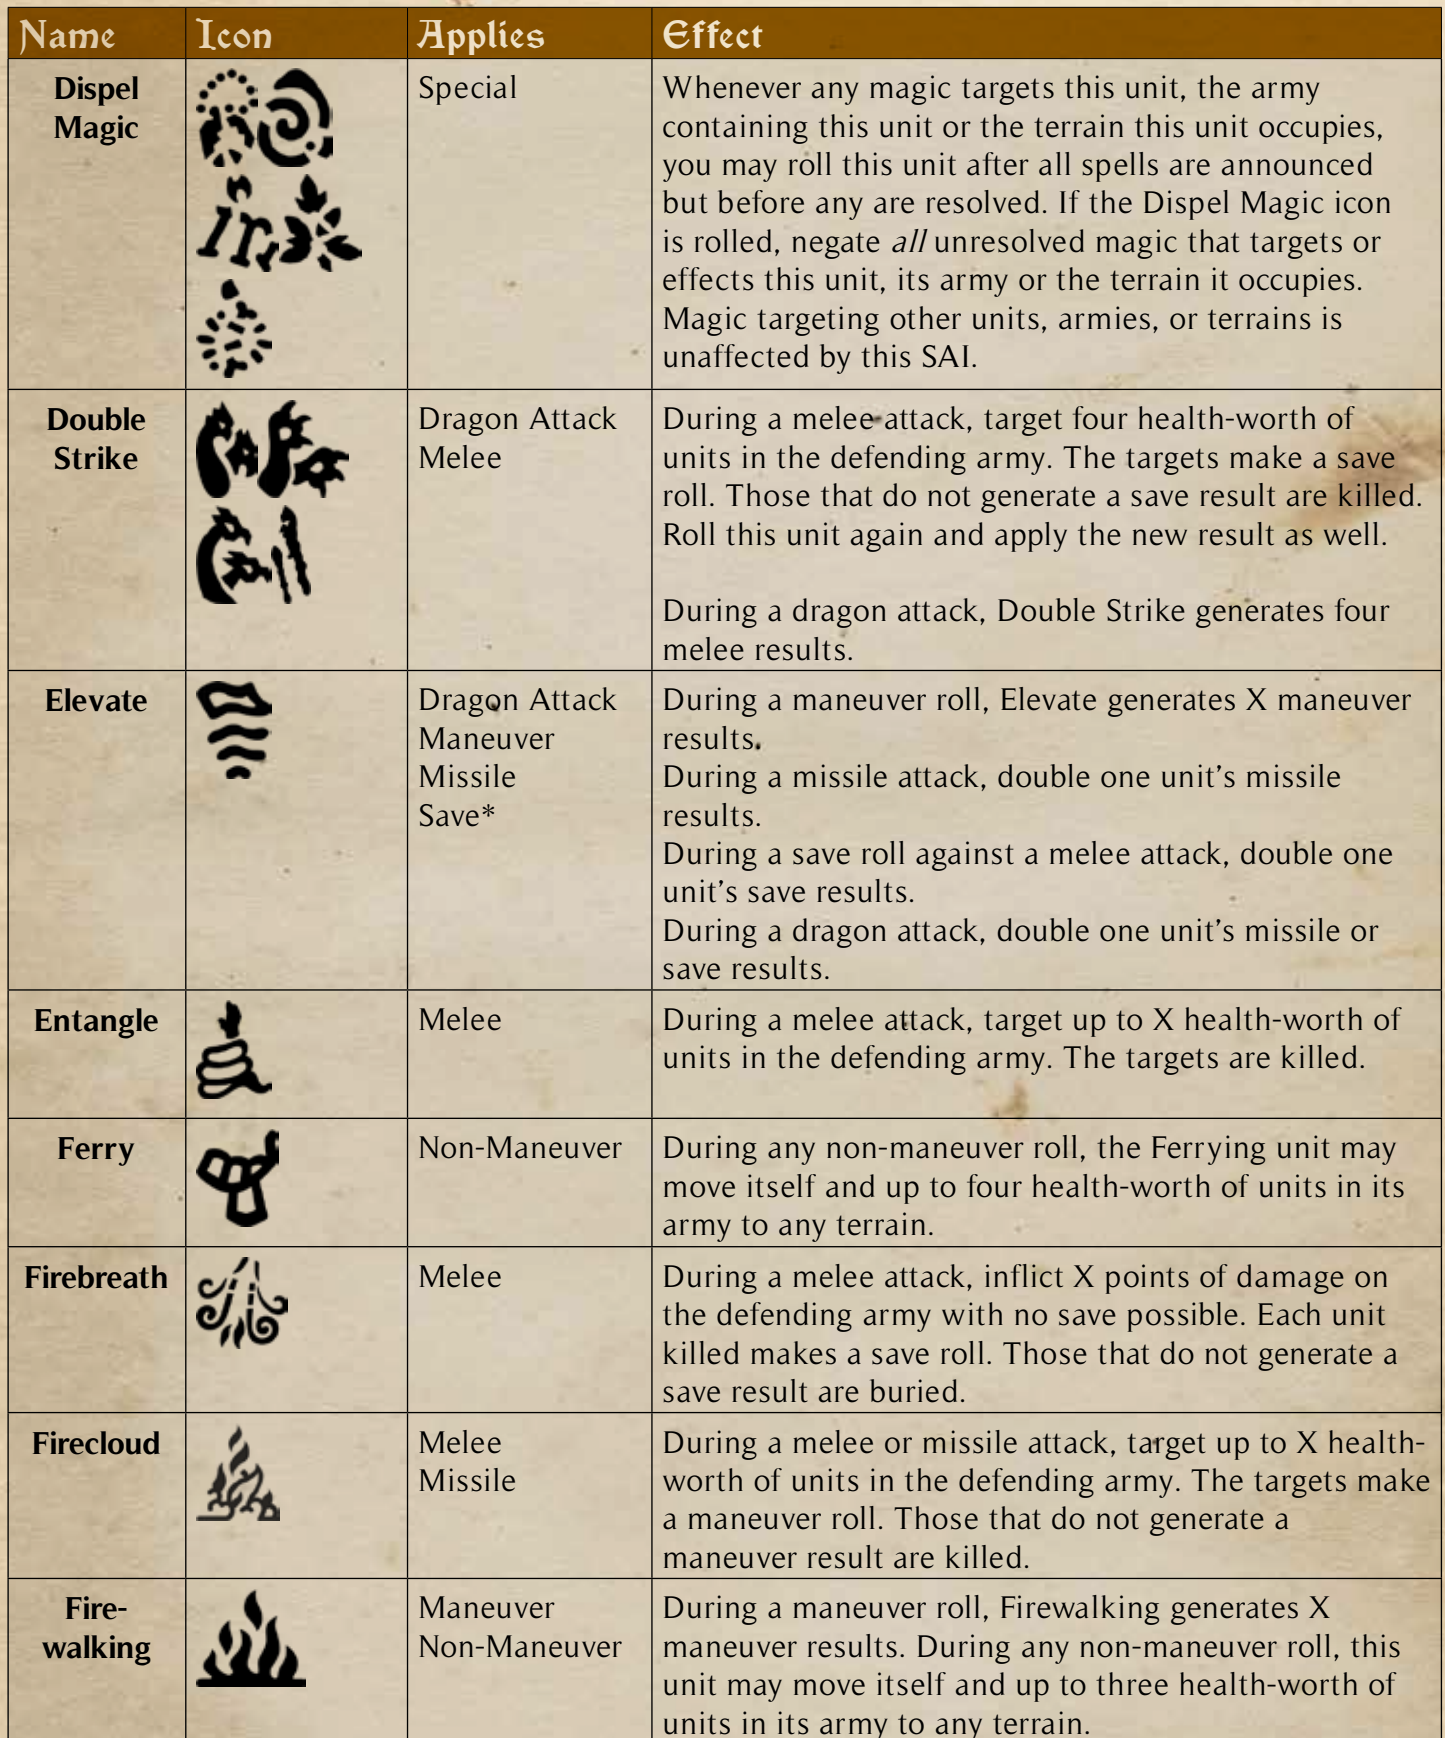 Name Icon Applies Effect
Dispel
Magic
Special
Whenever any magic targets this unit, the army
containing this unit or the terrain this unit occupies,
you may roll this unit after all spells are announced
but before any are resolved. If the Dispel Magic icon
is rolled, negate all unresolved magic that targets or
effects this unit, its army or the terrain it occupies.
Magic targeting other units, armies, or terrains is
unaffected by this SAI.
Double
Strike
Dragon Attack
Melee
During a melee attack, target four health-worth of
units in the defending army. The targets make a save
roll. Those that do not generate a save result are killed.
Roll this unit again and apply the new result as well.
During a dragon attack, Double Strike generates four
melee results.
Elevate
Dragon Attack
Maneuver
Missile
Save*
During a maneuver roll, Elevate generates X maneuver
results.
During a missile attack, double one unit's missile
results.
During a save roll against a melee attack, double one
unit's save results.
During a dragon attack, double one unit's missile or
save results.
Entangle
Melee
During a melee attack, target up to X health-worth of
units in the defending army. The targets are killed.
Ferry
Non-Maneuver
During any non-maneuver roll, the Ferrying unit may
move itself and up to four health-worth of units in its
army to any terrain.
Firebreath
Melee
During a melee attack, inflict X points of damage on
the defending army with no save possible. Each unit
killed makes a save roll. Those that do not generate a
save result are buried.
Firecloud
Melee
Missile
During a melee or missile attack, target up to X health-
worth of units in the defending army. The targets make
a maneuver roll. Those that do not generate a
maneuver result are killed.
Fire-
walking
Maneuver
Non-Maneuver
During a maneuver roll, Firewalking generates X
maneuver results. During any non-maneuver roll, this
unit may move itself and up to three health-worth of
units in its army to any terrain.